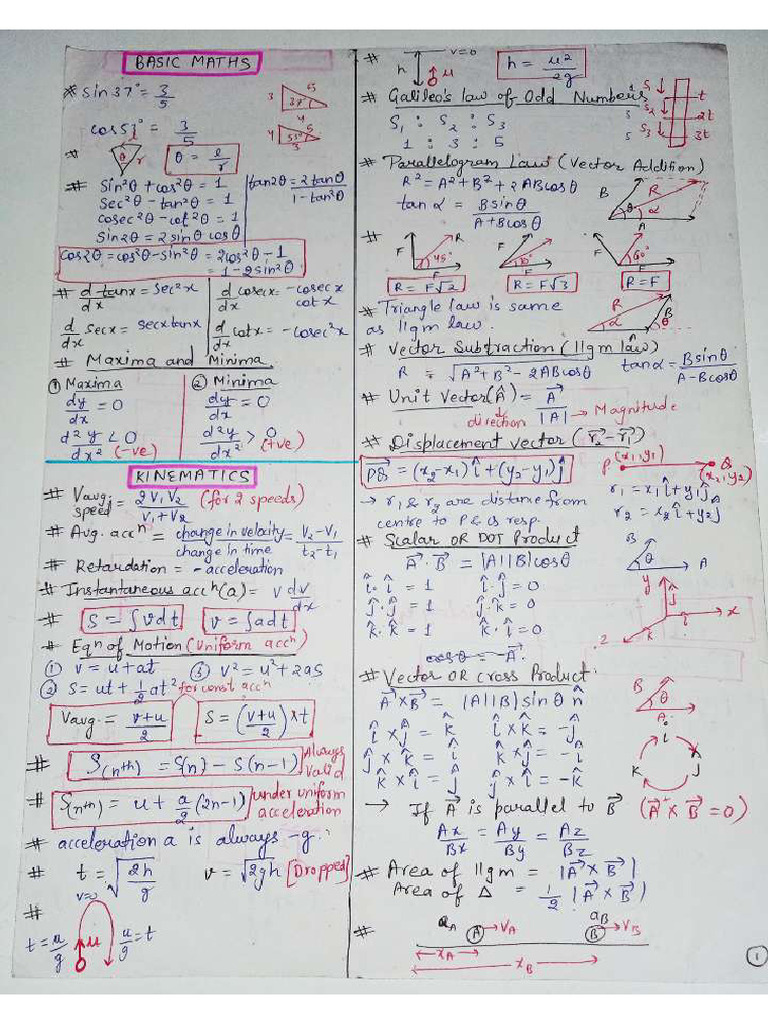 BASIC MATHS
# sin 37° = 3/5
3 5 37° 4
cos 53° = 3/5
4 5 53° 3
# θ r θ = l/r
# Sin²θ + cos²θ = 1
Sec²θ - tan²θ = 1
cosec²θ - cot²θ = 1
Sin2θ = 2 sinθ cosθ
tan2θ = 2 tanθ / 1 - tan²θ
cos2θ = cos²θ - sin²θ = 2cos²θ - 1
= 1 - 2sin²θ
# d/dx tanx = sec²x
d/dx cosecx = -cosecx cotx
d/dx secx = secx tanx
d/dx cotx = -cosec²x
# Maxima and Minima
① Maxima
dy/dx = 0
d²y/dx² < 0 (-ve)
② Minima
dy/dx = 0
d²y/dx² > 0 (+ve)
KINEMATICS
# Vavg. speed = 2V₁V₂ / V₁+V₂ (for 2 speeds)
# Avg. accⁿ = change in velocity / change in time = V₂-V₁ / t₂-t₁
# Retardation = - acceleration
# Instantaneous accⁿ (a) = v dv/dx
# S = ∫vdt v = ∫adt
# Eqⁿ of Motion (Uniform accⁿ)
① v = u + at ③ v² = u² + 2as
② S = ut + 1/2 at² for const accⁿ
Vavg. = v+u / 2 S = (v+u / 2) × t
# S(nth) = S(n) - S(n-1) Always Valid
# S(nth) = u + a/2 (2n-1) under uniform acceleration
# acceleration a is always -g.
# t = √2h/g v = √2gh [Dropped]
# v=0
t = u/g u u/g = t
# h v=0 u h = u²/2g
# Galileo's law of Odd Numbers
S₁ : S₂ : S₃
1 : 3 : 5
S₁ t
S₂ 2t
S₃ 3t
# Parallelogram Law (Vector Addition)
R² = A² + B² + 2ABcosθ
tan α = Bsinθ / A+Bcosθ
B R θ α A
# F R 45° F
F R F
F R 60° F
R = F√2 R = F√3 R = F
# Triangle law is same
as llgm law.
R B α θ
# Vector Subtraction (llgm law)
R = √A²+B²-2ABcosθ tanα = Bsinθ / A-Bcosθ
# Unit Vector (Â) = A⃗ / |A| → Magnitude
direction
# Displacement vector (r₂⃗ - r₁⃗)
PQ⃗ = (x₂-x₁)î + (y₂-y₁)ĵ
P (x₁,y₁) Q (x₂,y₂)
→ r₁ & r₂ are distance from
centre to P & Q resp.
r₁ = x₁î + y₁ĵ
r₂ = x₂î + y₂ĵ
# Scalar OR DOT Product
A⃗ · B⃗ = |A||B|cosθ
B θ A
î · î = 1 î · ĵ = 0
ĵ · ĵ = 1 ĵ · k̂ = 0
k̂ · k̂ = 1 k̂ · î = 0
y ĵ î x k̂ z
cosθ = A⃗.
# Vector OR Cross Product.
A⃗ × B⃗ = |A||B| sinθ n̂
B θ A
î × ĵ = k̂ î × k̂ = -ĵ
ĵ × k̂ = î k̂ × ĵ = -î
k̂ × î = ĵ ĵ × î = -k̂
i j k
→ If A⃗ is parallel to B⃗ (A⃗ × B⃗ = 0)
Ax/Bx = Ay/By = Az/Bz
# Area of llgm = |A⃗ × B⃗|
Area of Δ = 1/2 |A⃗ × B⃗|
# aA A → VA aB B → VB
xA
xB
1